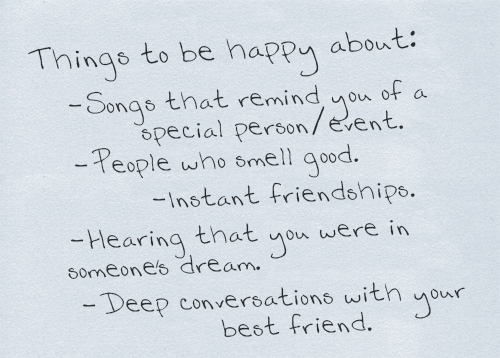 Things to be happy about:
-Songs that remind you of a
special person/event.
-People who smell good.
-Instant friendships.
-Hearing that you were in
someone's dream.
-Deep conversations with your
best friend.